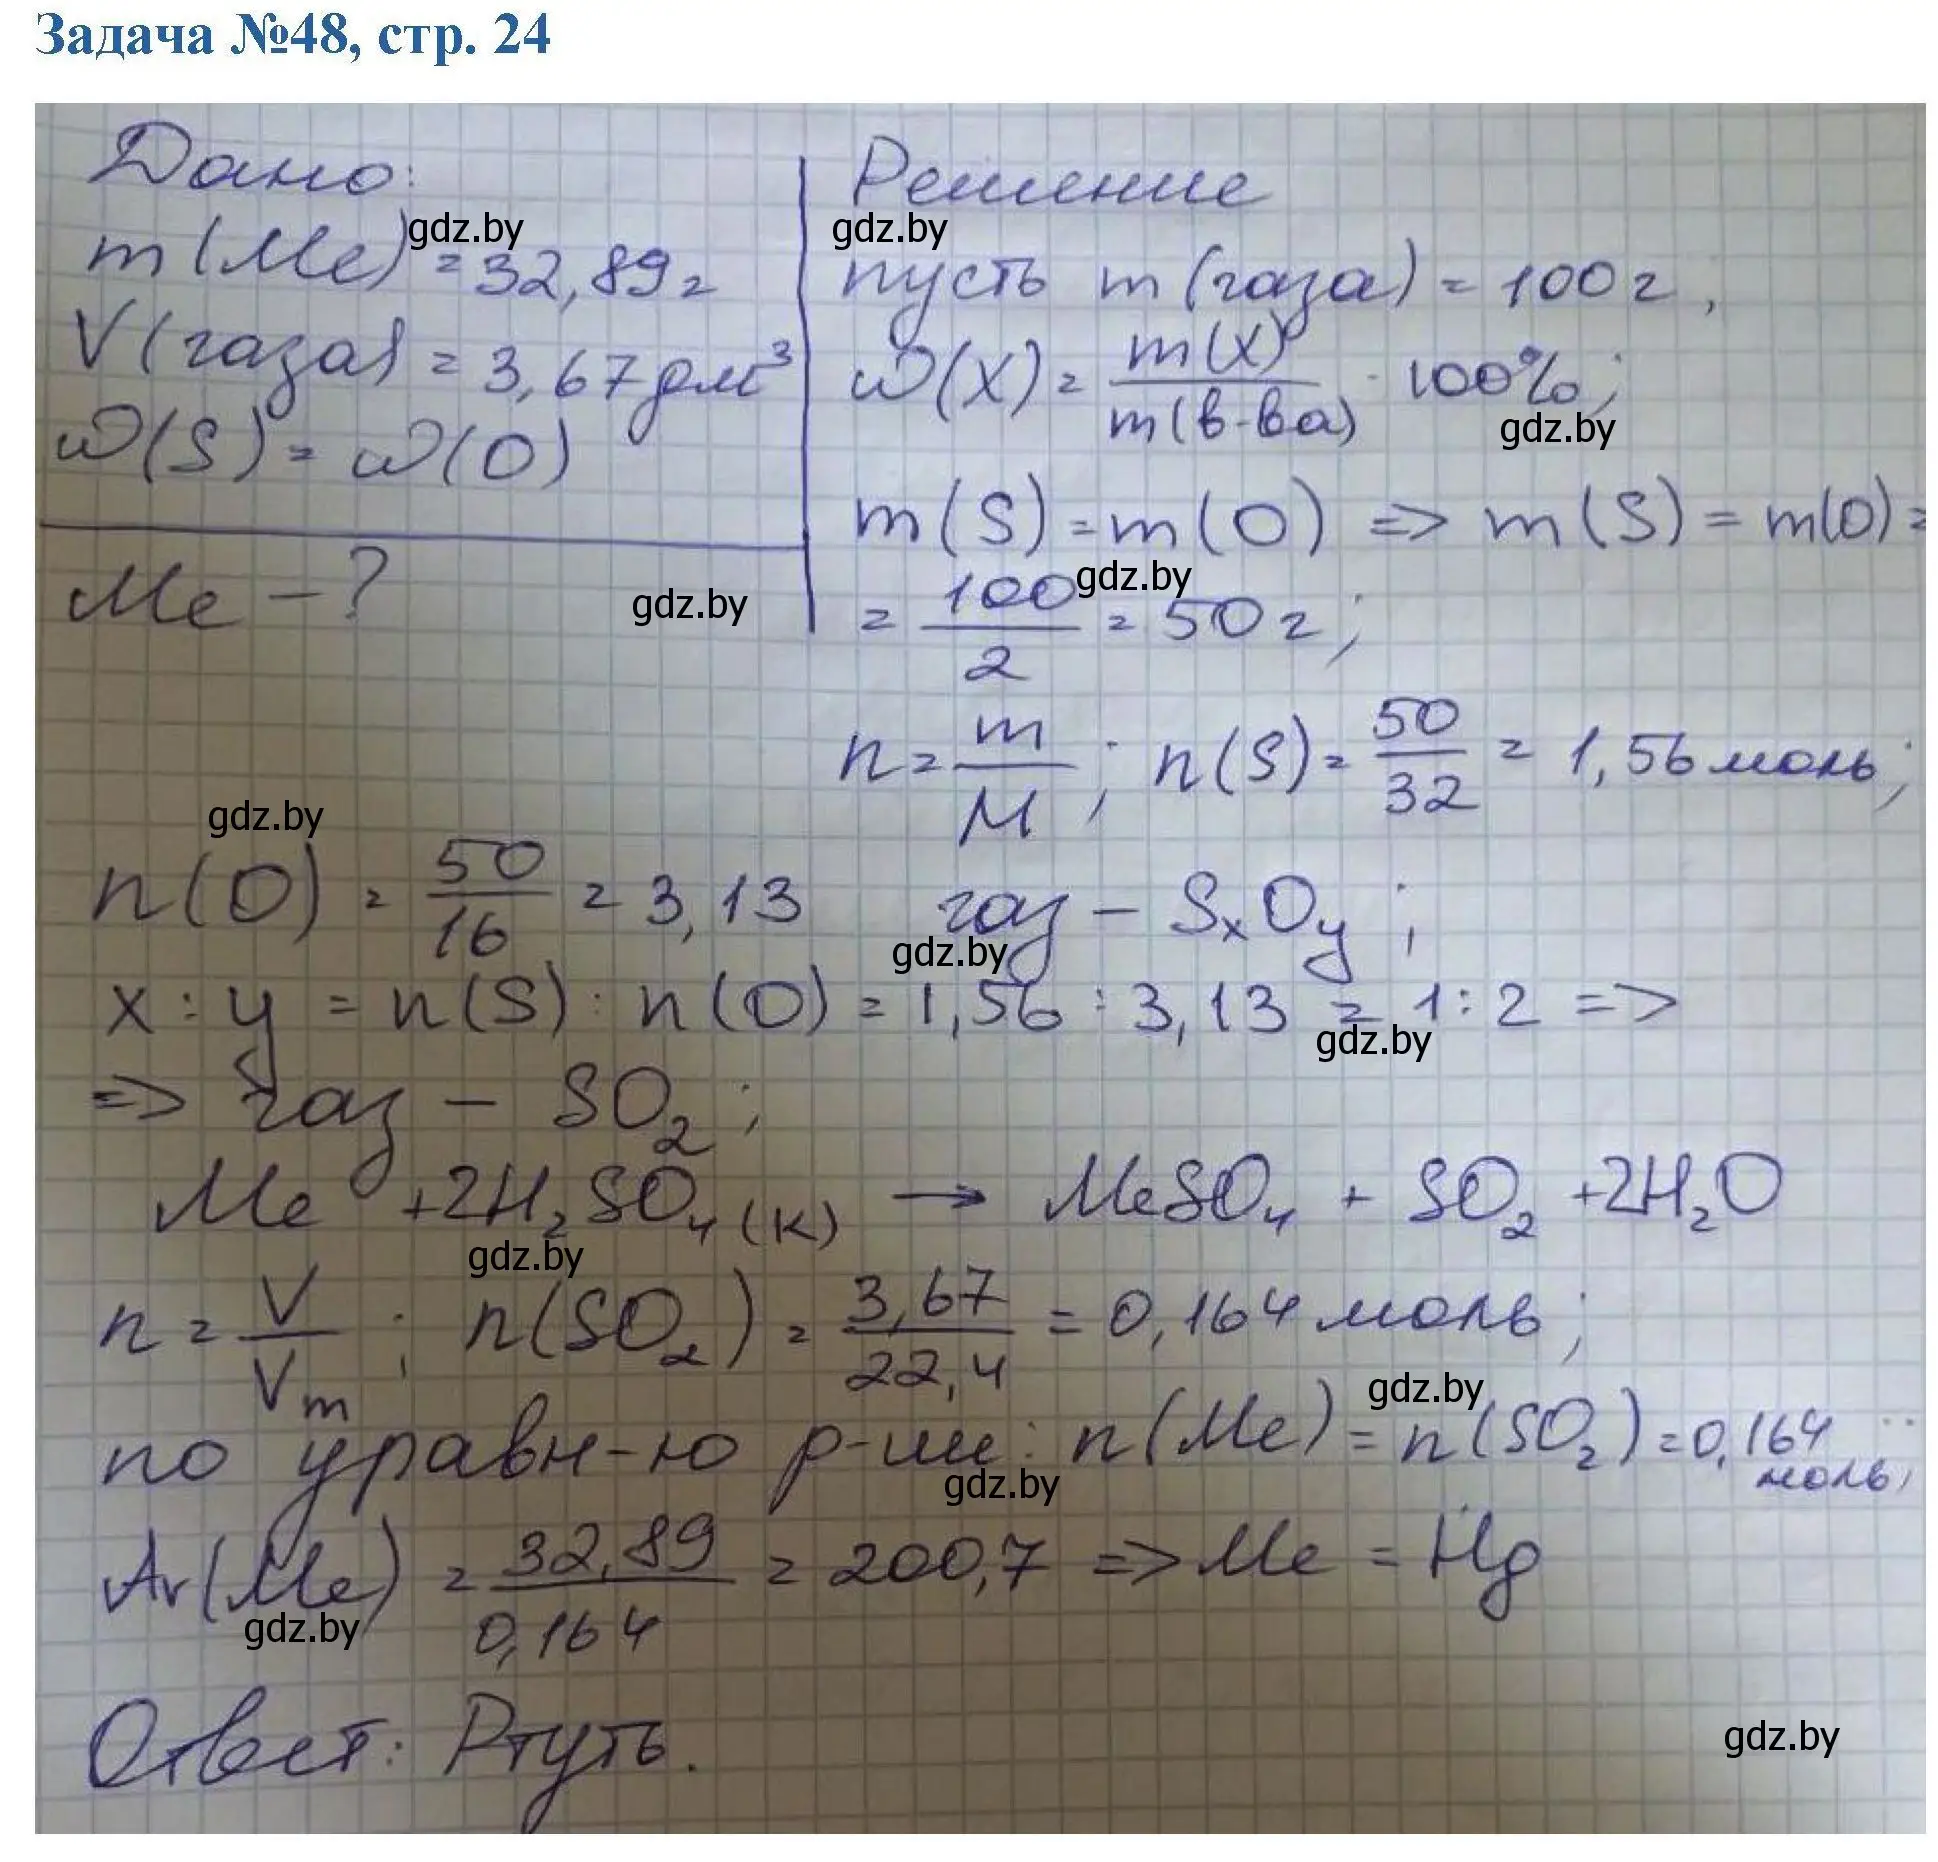 Задача №48, стр. 24
Дано:
m(Me) = 32,89 г
V(газа) = 3,67 дм³
ω(S) = ω(O)
Me - ?
Решение
пусть m(газа) = 100 г,
ω(X) = m(X) / m(в-ва) · 100%;
m(S) = m(O) => m(S) = m(O) =
= 100/2 = 50 г;
n = m/M; n(S) = 50/32 = 1,56 моль;
n(O) = 50/16 = 3,13 газ - SxOy;
x : y = n(S) : n(O) = 1,56 : 3,13 = 1 : 2 =>
=> газ - SO₂;
Me + 2H₂SO₄(к) → MeSO₄ + SO₂ + 2H₂O
n = V/Vm; n(SO₂) = 3,67/22,4 = 0,164 моль;
по уравн-ю р-ии: n(Me) = n(SO₂) = 0,164 моль;
Ar(Me) = 32,89/0,164 = 200,7 => Me = Hg
Ответ: Ртуть.
gdz.by
gdz.by
gdz.by
gdz.by
gdz.by
gdz.by
gdz.by
gdz.by
gdz.by
gdz.by
gdz.by
gdz.by
gdz.by